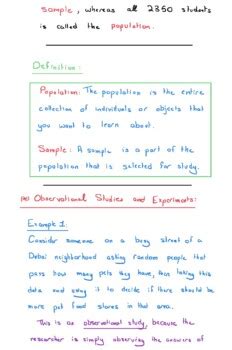 Sample, whereas all 2350 students
is called the population.
Definition:
Population: The population is the entire
collection of individuals or objects that
you want to learn about.
Sample: A sample is a part of the
population that is selected for study.
Observational Studies and Experiments:
Example 1:
Consider someone on a busy street of a
Dubai neighborhood asking random people that
pass how many pets they have, then taking this
data and using it to decide if there should be
more pet food stores in that area.
This is an observational study, because the
researcher is simply observing the answers of